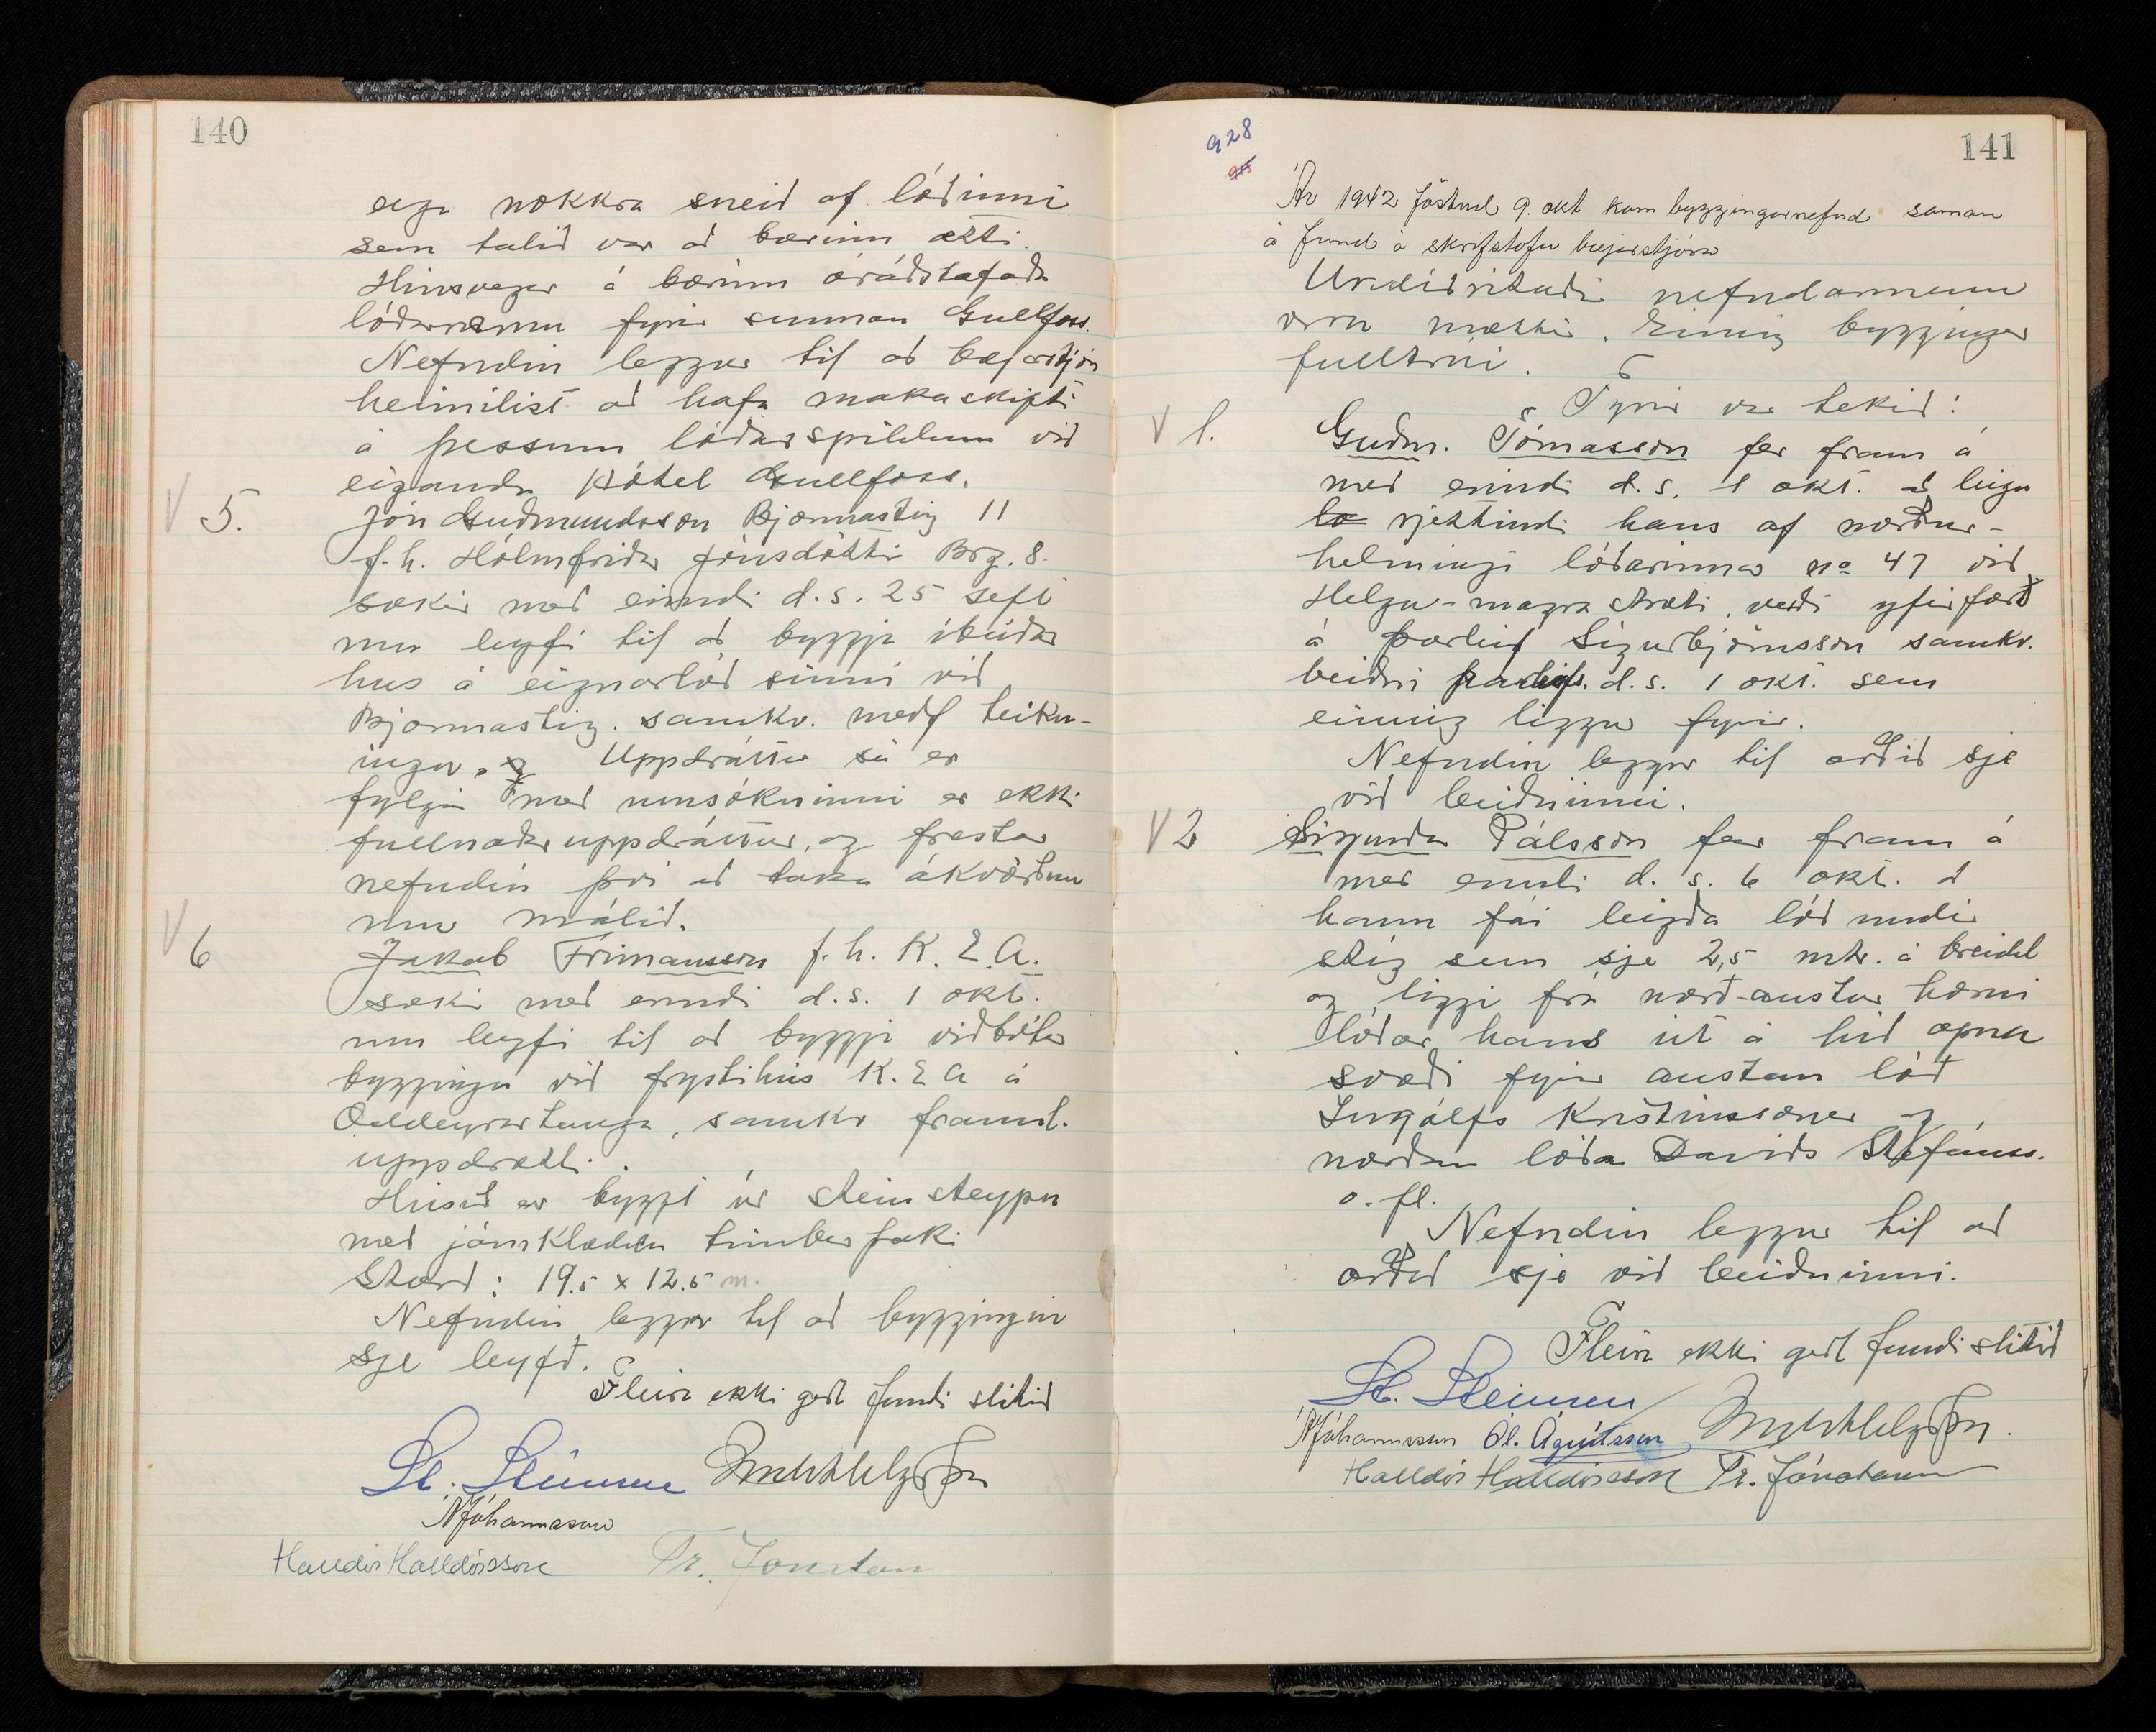 140
eiga nokkra sneid af lódinni
sem talid var ad bærinn ætti.
Hinsvegar á bærinn óráðstafaða
lódarræmu fyrir sunnan Gullfoss.
Nefndin leggur til ad bæjarstjórn
heimilist ad hafa makaskipti
á þessum lódarspildum vid
eiganda Hótel Gullfoss.
V 5. Jón Gudmundsson Bjarmastig 11
f. h. Hólmfridar Jónsdóttir Brg. 8.
sækir med erindi d.s. 25 sept
um leyfi til ad byggja ibúdar
hus á eignarlód sinni vid
Bjarmastig. samkv. medf teikn-
ingu. Uppdráttur sá er
fylgir med umsókninni er ekki
fullnadar uppdráttur, og frestar
nefndin því ad taka ákvördun
um málid.
V 6 Jakob Frimannsson f. h. K. E. A.
sækir med erindi d.s. 1 okt.
um leyfi til ad byggja vidbótar
byggingu vid frystihús K. E A á
Oddeyrartanga, samkv framl.
uppdrætti.
Húsid er byggt úr steinsteypu
med járnklæddu timburþaki
Stærd: 19.5 x 12.5 m.
Nefndin leggur til ad byggingin
sje leyfd.
Fleira ekki gert fundi slitid
St. Steinsen
Jóhannsson
Halldór Halldórsson Tr. Jónatans
928
141
Ár 1942 föstud 9. okt kom byggingarnefnd saman
á fund á skrifstofu bæjarstjóra
Undirritadir nefndarmenn
voru mættir. Einnig byggingar
fulltrúi.
Fyrir var tekid:
V 1. Gudm. Tómasson fer fram á
med erindi d.s. 1 okt. ad leigu
lo rjettindi hans af nordur-
helmingi lódarinnar no 47 vid
Helga-magra stræti, verdi yfirfærd
á Þorleif Sigurbjörnsson samkv.
beidni Þorleifs. d.s. 1 okt. sem
einnig liggur fyrir.
Nefndin leggur til ordid sje
vid beidninni.
V 2 Sigurdur Pálsson fer fram á
med erindi d. s. 6 okt. ad
hann fái leigda lód undir
stíg sem sje 2,5 mtr. á breidd
og liggi frá nord-austur horni
lódar hans út á hid opna
svædi fyrir austan lód
Ingólfs Kristinssonar og
nordan lóda Davids Stefánss.
o. fl.
Nefndin leggur til ad
ordid sje vid beidninni.
Fleira ekki gert fundi slitid
St. Steinsen
Jóhannsson Ól. Ágústsson
Halldór Halldórsson Tr. Jónatans